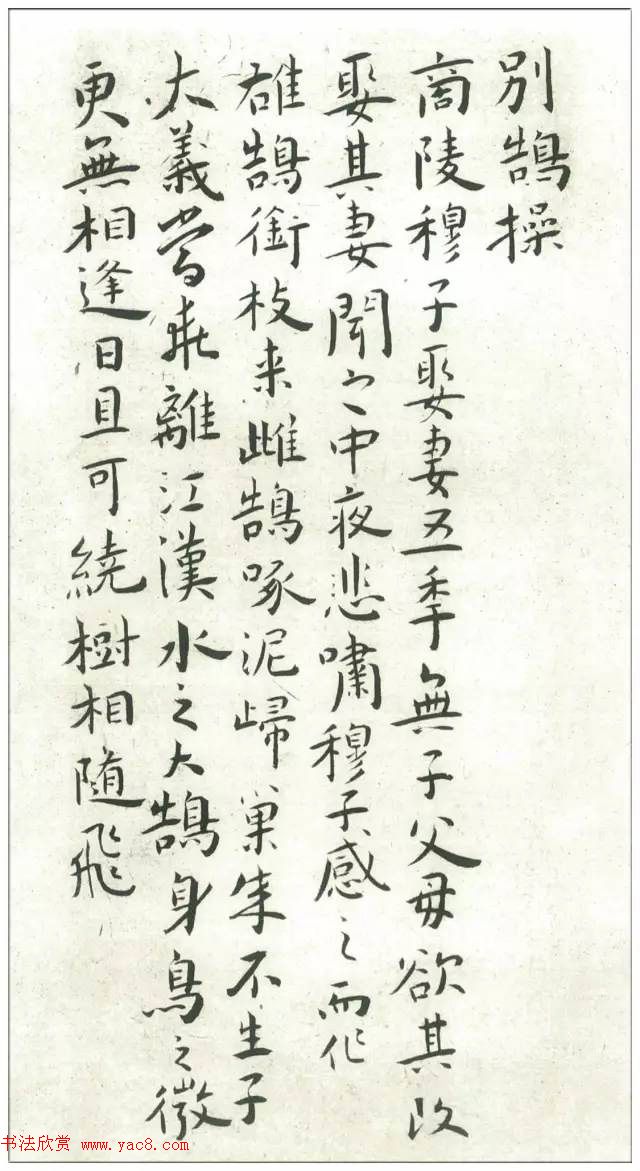 別鵠操
商陵穆子娶妻五年無子父母欲其改
娶其妻聞之中夜悲嘯穆子感之而作
雄鵠銜枝来雌鵠啄泥歸巢不生子
大義當乖離江漢水之大鵠身鳥之微
更無相逢日且可繞樹相随飛
书法欣赏 www.yac8.com